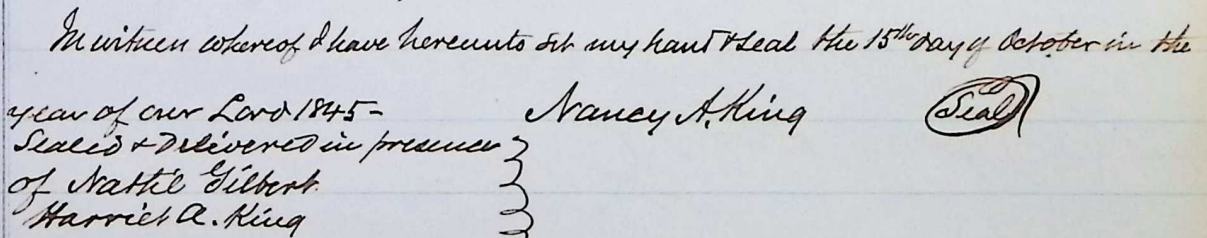 In witness whereof I have hereunto set my hand & seal the 15th day of October in the
year of our Lord 1845- Nancy A. King Seal
Sealed & Delivered in presence
of Nathl Gilbert
Harriet A. King